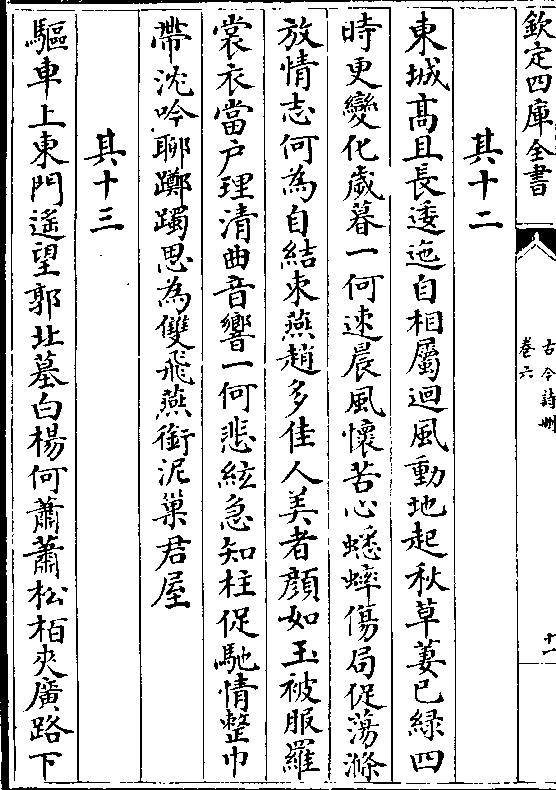 欽定四庫全書
古今詩刪
卷六
十一
其十二
東城髙且長逶迤自相屬迴風動地起秋草萋已緑四
時更變化歲暮一何速晨風懷苦心蟋蟀傷局促蕩滌
放情志何為自結束燕趙多佳人美者顔如玉被服羅
裳衣當户理清曲音響一何悲絃急知柱促馳情整巾
帶沈吟聊躑躅思為雙飛燕銜泥巢君屋
其十三
驅車上東門遙望郭北墓白楊何蕭蕭松栢夾廣路下